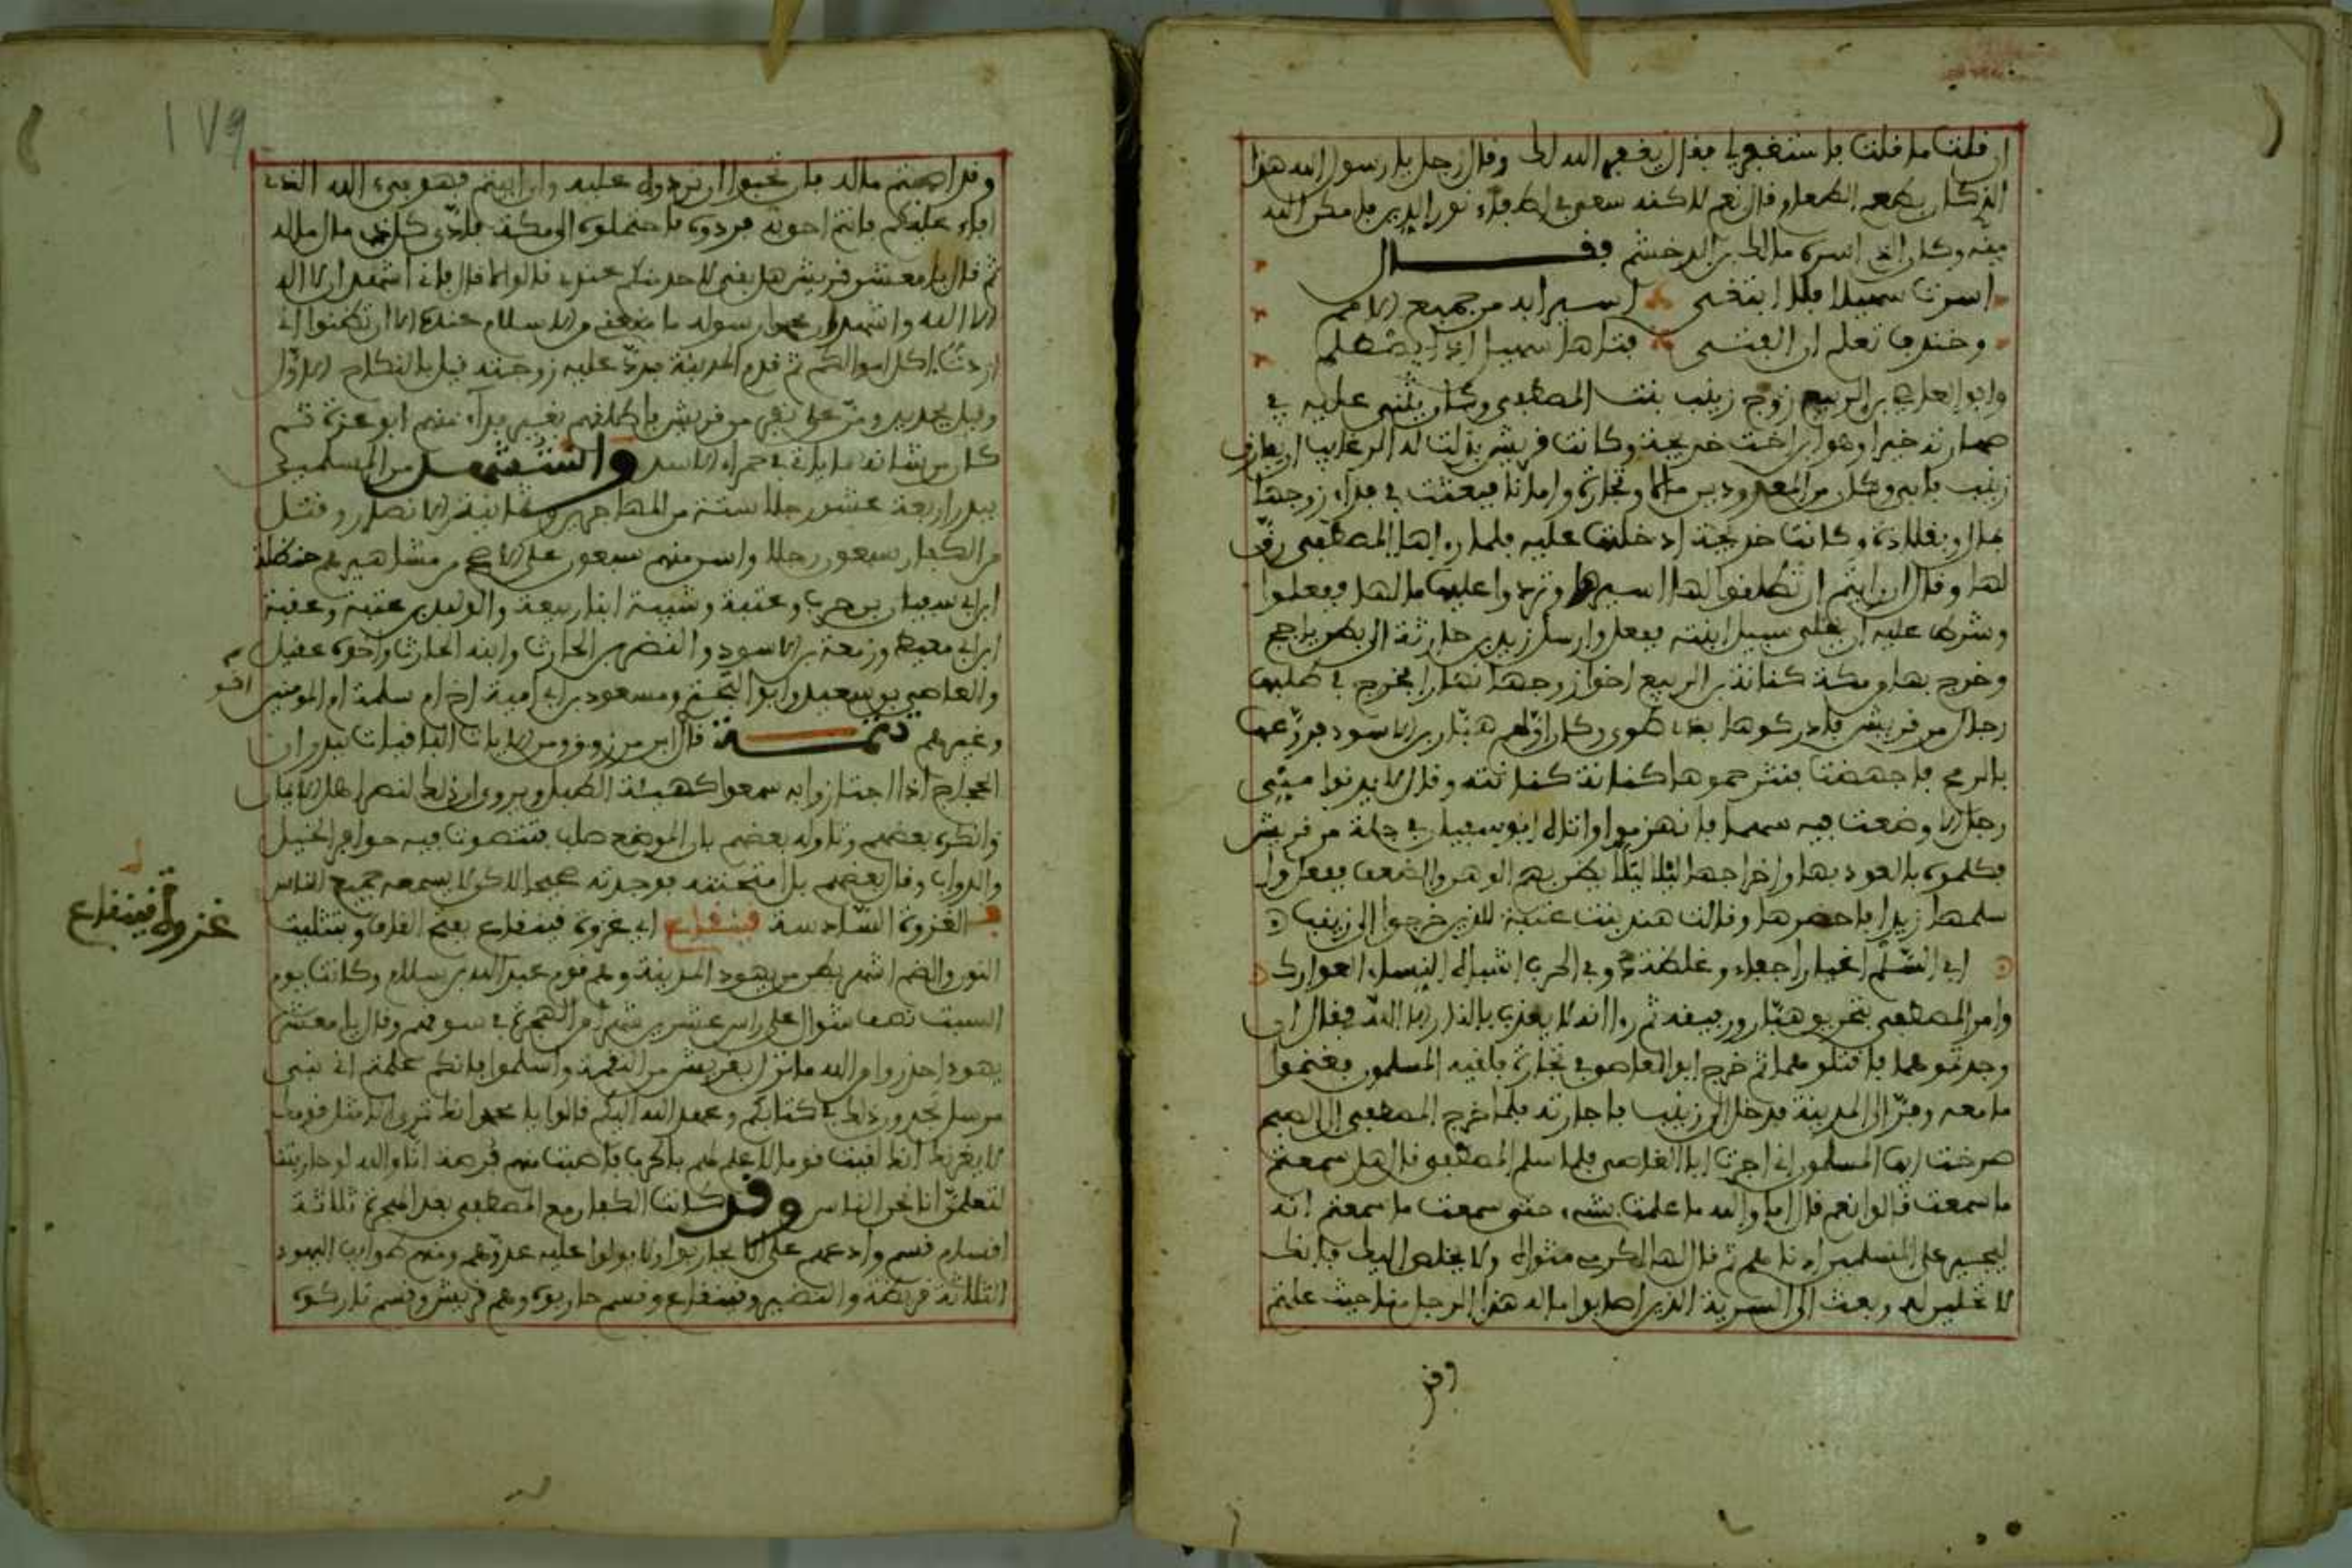 ان قلت ما قلت فاستغفر لي فقال يغفر الله لك وقال رجل يا رسول الله هذا
الذي كان يطعم الطعام قال نعم لاكنه سعى في إطفاء نور الدين فأمكن الله
منه وكان الذي اسره مالك بن الدخشم فقـــــال
اسرت سهيلا فلا ابتغي اسيرا به من جميع الامم
وخندف تعلم ان الفتى فتاها سهيل اذا يظلم
وابو العاصي بن الربيع زوج زينب بنت المصطفى وكان يثني عليه في
صهارته خيرا وهو ابن اخت خديجة وكانت قريش بذلت له الرغايب ان يفارق
زينب فابى وكان من المعدودين مالا وتجارة وامانة فبعثت في فداء زوجها
مالا وبقلادة وكانت خديجة ادخلتها عليه فلما رءاها المصطفى رق
لها وقال ان رايتم ان تطلقوا لها اسيرها وتردوا عليها مالها ففعلوا
وشرط عليه ان يخلي سبيل ابنته ففعل وارسل زيد بن حارثة الى بطن ياجج
وخرج بها من مكة كنانة بن الربيع اخو زوجها نهارا فخرج في طلبها
رجال من قريش فادركوها بذي طوى وكان اولهم هبار بن الاسود فروعها
بالرمح فاجهضت فنثر حموها كنانة كنانته وقال لا يدنوا مني
رجل الا وضعت فيه سهما فانهزموا واتاه ابو سفيان في جلة من قريش
فكلموه بالعود بها واخراجها ليلا ليلا يظن بهم الوهن والضعف ففعل ول
سلمها زيدا فاحضرها وقالت هند بنت عتبة للذين خرجوا الى زينب
افي السلم اعيارا جفاء وغلظة وفي الحرب اشباه النساء العوارك
وامر المصطفى بتحريق هبار ورفيقه ثم رأا انه لا يعذب بالنار الا الله فقال ان
وجدتموهما فاقتلوهما ثم خرج ابو العاصي في تجارة فلقيه المسلمون فغنموا
ما معه وفر الى المدينة فدخل الى زينب فاجارته فلما خرج المصطفى الى الصبح
صرخت ايها المسلمون اني اجرت ابا العاصي فلما سلم المصطفى قال هل سمعتم
ما سمعت قالوا نعم قال اما والله ما علمت بشيء حتى سمعت ما سمعتم انه
ليجير على المسلمين ادناهم ثم قال لها اكرمي مثواه ولا يخلص اليك فانك
لا تحلين له وبعث الى السرية الذين اصابوا ماله هذا الرجل منا حيث علمتم
وقد
١٧٩
وقد اصبتم ماله فان تحبوا ان تردوه عليه وان ابيتم فهو فيء الله الذي
افاء عليكم فانتم احق به فردوه فاحتملوه الى مكة فادى كل ذي مال ماله
ثم قال يا معشر قريش هل بقي لاحد منكم عندي قالوا لا قال فاني اشهد ان لا اله
الا الله واشهد ان محمدا رسوله ما منعني من الاسلام عنده الا ان تظنوا اني
اردت اكل اموالكم ثم قدم المدينة فرد عليه زوجته قيل بالنكاح الاول
وقيل بجديد ومن على نفر من قريش فاطلقهم بغير فداء منهم ابو عزة ثم
كان من شانه ما ياتي في حمراء الاسد واستشهد من المسلمين
ببدر اربعة عشر رجلا ستة من المهاجرين وثمانية من الانصار وقتل
من الكفار سبعون رجلا واسر منهم سبعون على الاصح من مشاهيرهم حنظلة
ابن ابي سفيان بن حرب وعتبة وشيبة ابنا ربيعة والوليد بن عتبة وعقبة
ابن ابي معيط وزمعة بن الاسود والنضر بن الحارث وابنه الحارث واخوه عقيل
والعاصي بن سعيد وابو البختري ومسعود بن ابي امية اخ ام سلمة ام المومنين
اخو
وغيرهم تتمـــة قال ابن مرزوق ومن الايات الباقيات ببدر ان
الحجاج اذا اجتازوا به سمعوا كهيئة الطبل ويروى ان ذلك لنصر اهل الايمان
وانكره بعضهم وتاوله بعضهم بان الموضع صلب فتتصوت فيه حوافر الخيل
والدواب وقال بعضهم بل امتحنته فوجدته صحيحا لاكن لا يسمعه جميع الناس
الغزوة السادسة قينقاع اي غزوة قينقاع بفتح القاف وتثليث
غزوة قينقاع
النون والضم اشهر بطن من يهود المدينة وهم قوم عبد الله بن سلام وكانت يوم
السبت نصف شوال على راس عشرين شهرا من الهجرة في سوقهم وقال يا معشر
يهود احذروا من الله ما نزل بقريش من النقمة واسلموا فانكم علمتم اني نبي
مرسل تجدون ذلك في كتابكم وعهد الله اليكم قالوا يا محمد انك ترى انا مثل قومك
لا يغرنك انك لقيت قوما لا علم لهم بالحرب فاصبت منهم فرصة انا والله لو حاربتنا
لتعلمن انا نحن الناس وقد كانت الكفار مع المصطفى بعد الهجرة ثلاثة
اقسام قسم وادعهم على الا يحاربوا ولا يولوا عليه عدوهم ومنهم طوايف اليهود
الثلاثة قريظة والنضير وقينقاع وقسم حاربوه وهم قريش وقسم تاركوه